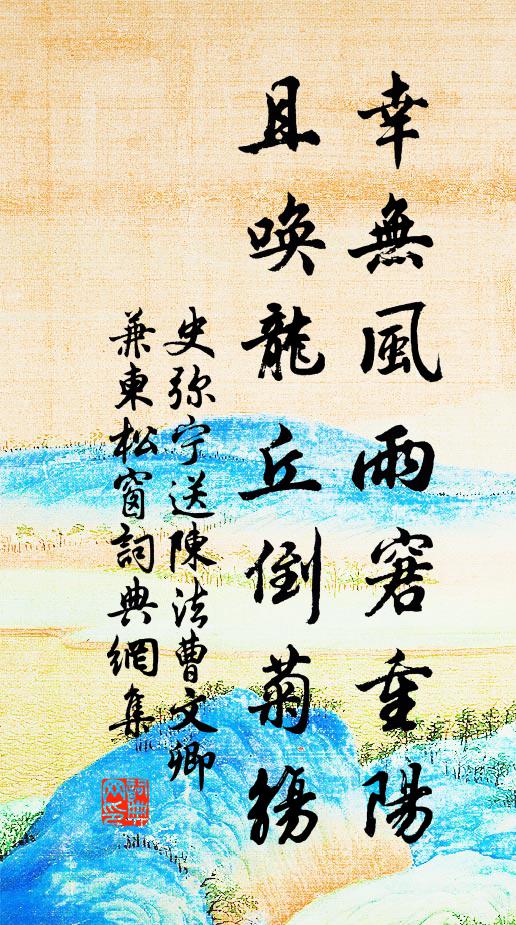 幸無風雨窘重陽
且喚龍丘倒菊觴
史弥宁送陳法曹文卿
兼東松窗詞典網集